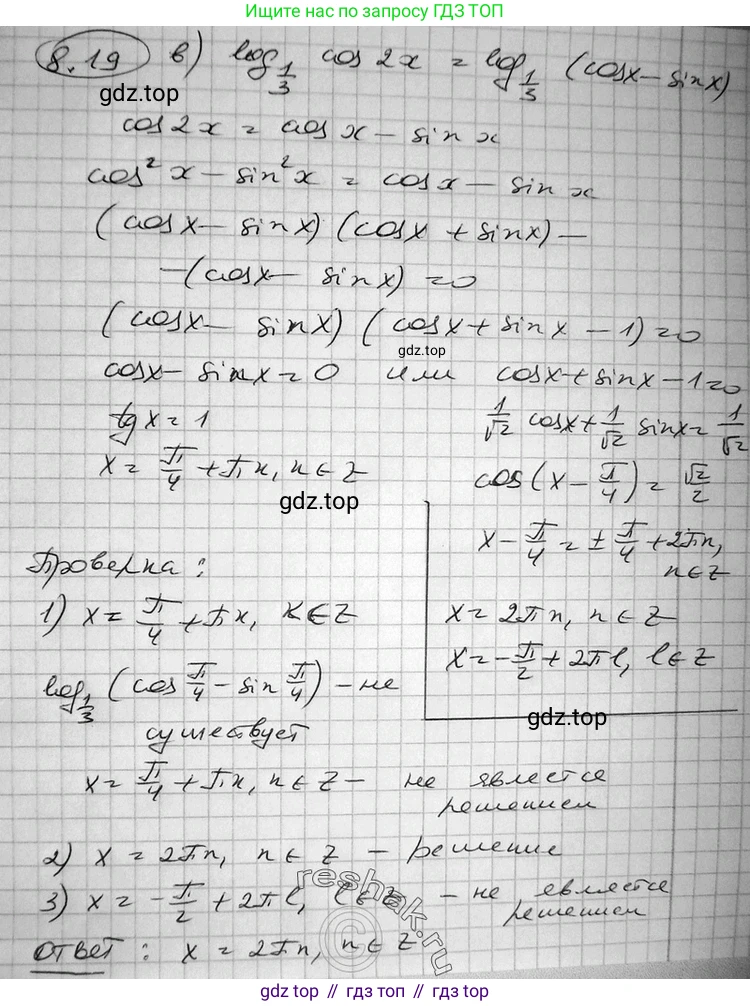 подготовка к экзаменам по ссылке ГДЗ ТОП
8.19 в) log_{1/3} cos 2x = log_{1/3} (cosx - sinx)
gdz.top
cos 2x = cos x - sin x
cos² x - sin² x = cos x - sin x
(cos x - sin x) (cos x + sin x) -
- (cos x - sin x) = 0
(cos x - sin x) (cos x + sin x - 1) = 0
gdz.top
cos x - sin x = 0 или cos x + sin x - 1 = 0
tg x = 1
x = π/4 + πn, n ∈ Z
gdz.top
1/√2 cos x + 1/√2 sin x = 1/√2
cos (x - π/4) = √2/2
x - π/4 = ± π/4 + 2πn,
n ∈ Z
x = 2πn, n ∈ Z
x = -π/2 + 2πl, l ∈ Z
gdz.top
Проверка:
1) x = π/4 + πn, n ∈ Z
log_{1/3} (cos π/4 - sin π/4) - не
существует
x = π/4 + πn, n ∈ Z - не является
решением
2) x = 2πn, n ∈ Z - решение
3) x = -π/2 + 2πl, l ∈ Z - не является
решением
reshak.ru
©
ответ: x = 2πn, n ∈ Z
gdz.top // гдз.топ // gdz.top // гдз.топ